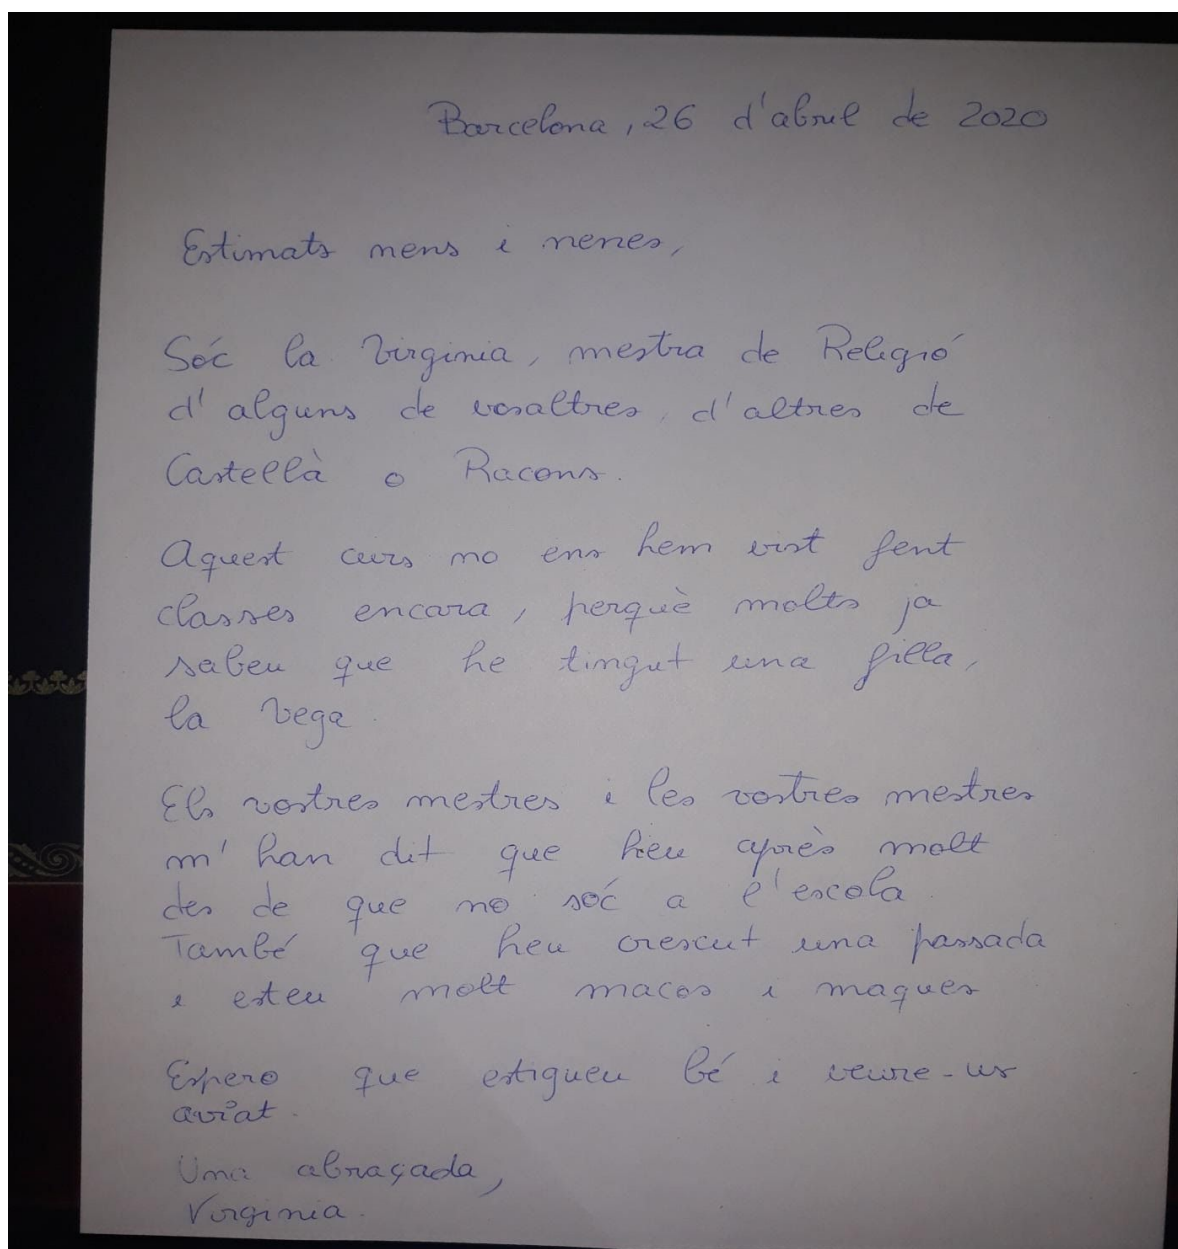 Barcelona, 26 d'abril de 2020
Estimats nens i nenes,
Sóc la Virginia, mestra de Religió
d'alguns de vosaltres, d'altres de
Castellà o Racons.
Aquest curs no ens hem vist fent
classes encara, perquè molts ja
sabeu que he tingut una filla,
la Vega.
Els vostres mestres i les vostres mestres
m'han dit que heu après molt
des de que no sóc a l'escola
També que heu crescut una passada
i esteu molt macos i maques
Espero que estigueu bé i veure-us
aviat.
Una abraçada,
Virginia.